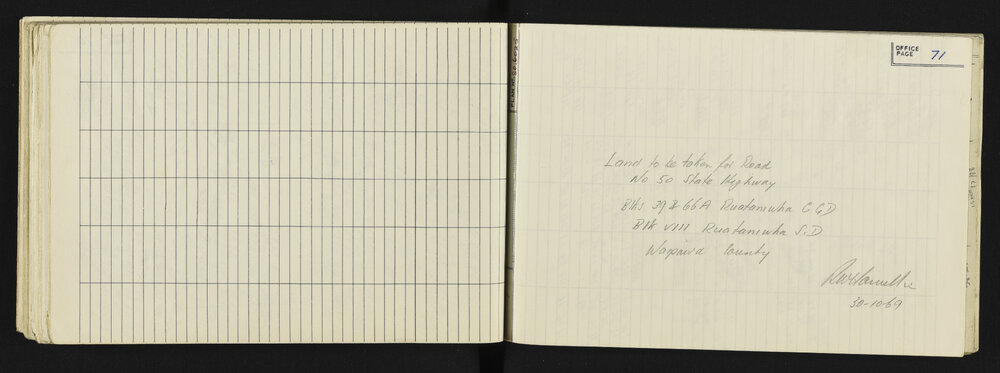 OFFICE
PAGE 71
Land to be taken for Road
No 50 State Highway
Blks 39 & 66A Ruataniwha C G D
Blk VIII Ruataniwha S.D
Waipawa County
30-10-69